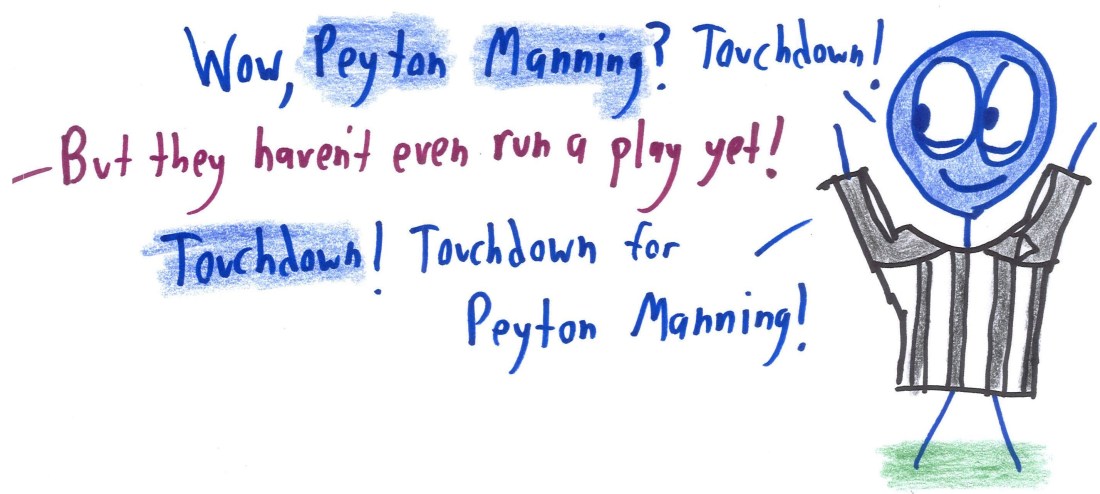 Wow, Peyton Manning? Touchdown!
-But they haven't even run a play yet!
Touchdown! Touchdown for
Peyton Manning!